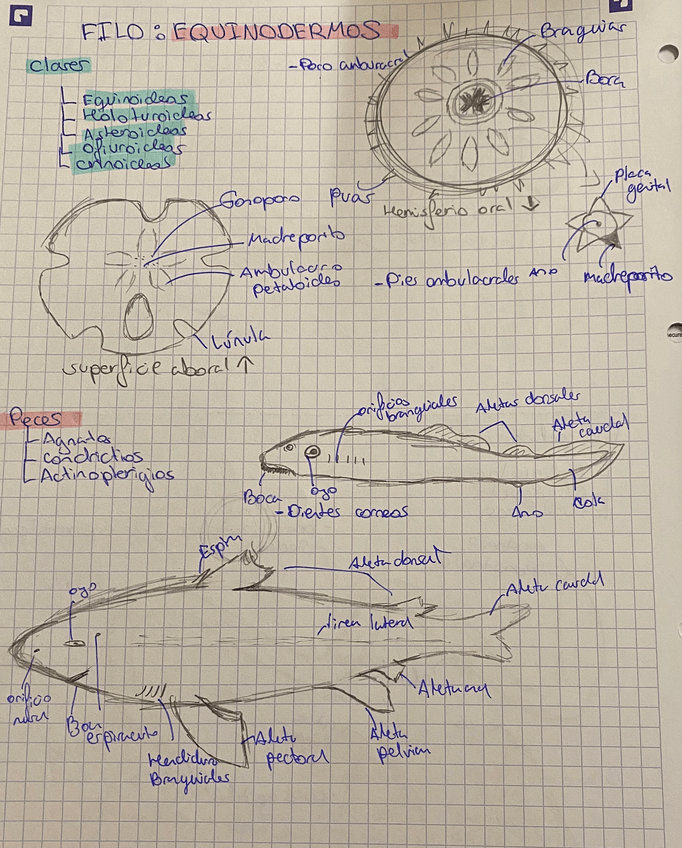 FILO: EQUINODERMOS
Clases
Equinoideas
Holoturoideas
Asteroideas
Ofiuroideas
crinoideas
-Poco ambulacral
Braquias
Boca
Puas
Hemisferio oral ↓
Placa genital
madreporito
Ano
-Pies ambulacrales
Gonoporo
Madreporito
Ambulacro
petaloideo
Lúnula
superficie aboral ↑
Peces
Agnatos
Condrictios
Actinopterigios
orificios
branquiales
Aletas dorsales
Aleta
caudal
Boca
ojo
-Dientes corneos
Ano
Cola
Espina
Aleta dorsal
ojo
Aleta caudal
linea lateral
orificio
nasal
Boca
espiraculo
Hendidura
Branquiales
Aleta
pectoral
Aleta
pelvica
Aleta anal